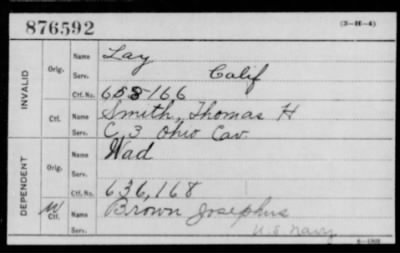 876592
(3-H-4)
INVALID
Orig.
Name Lay
Serv. Calif
Ctf. No. 658166
Ctf.
Name Smith, Thomas H
Serv. C, 3 Ohio Cav.
DEPENDENT
Orig.
Name Wad
Serv.
Ctf. No. 636,168
W
Ctf.
Name Brown Josephus
Serv. U.S. Navy